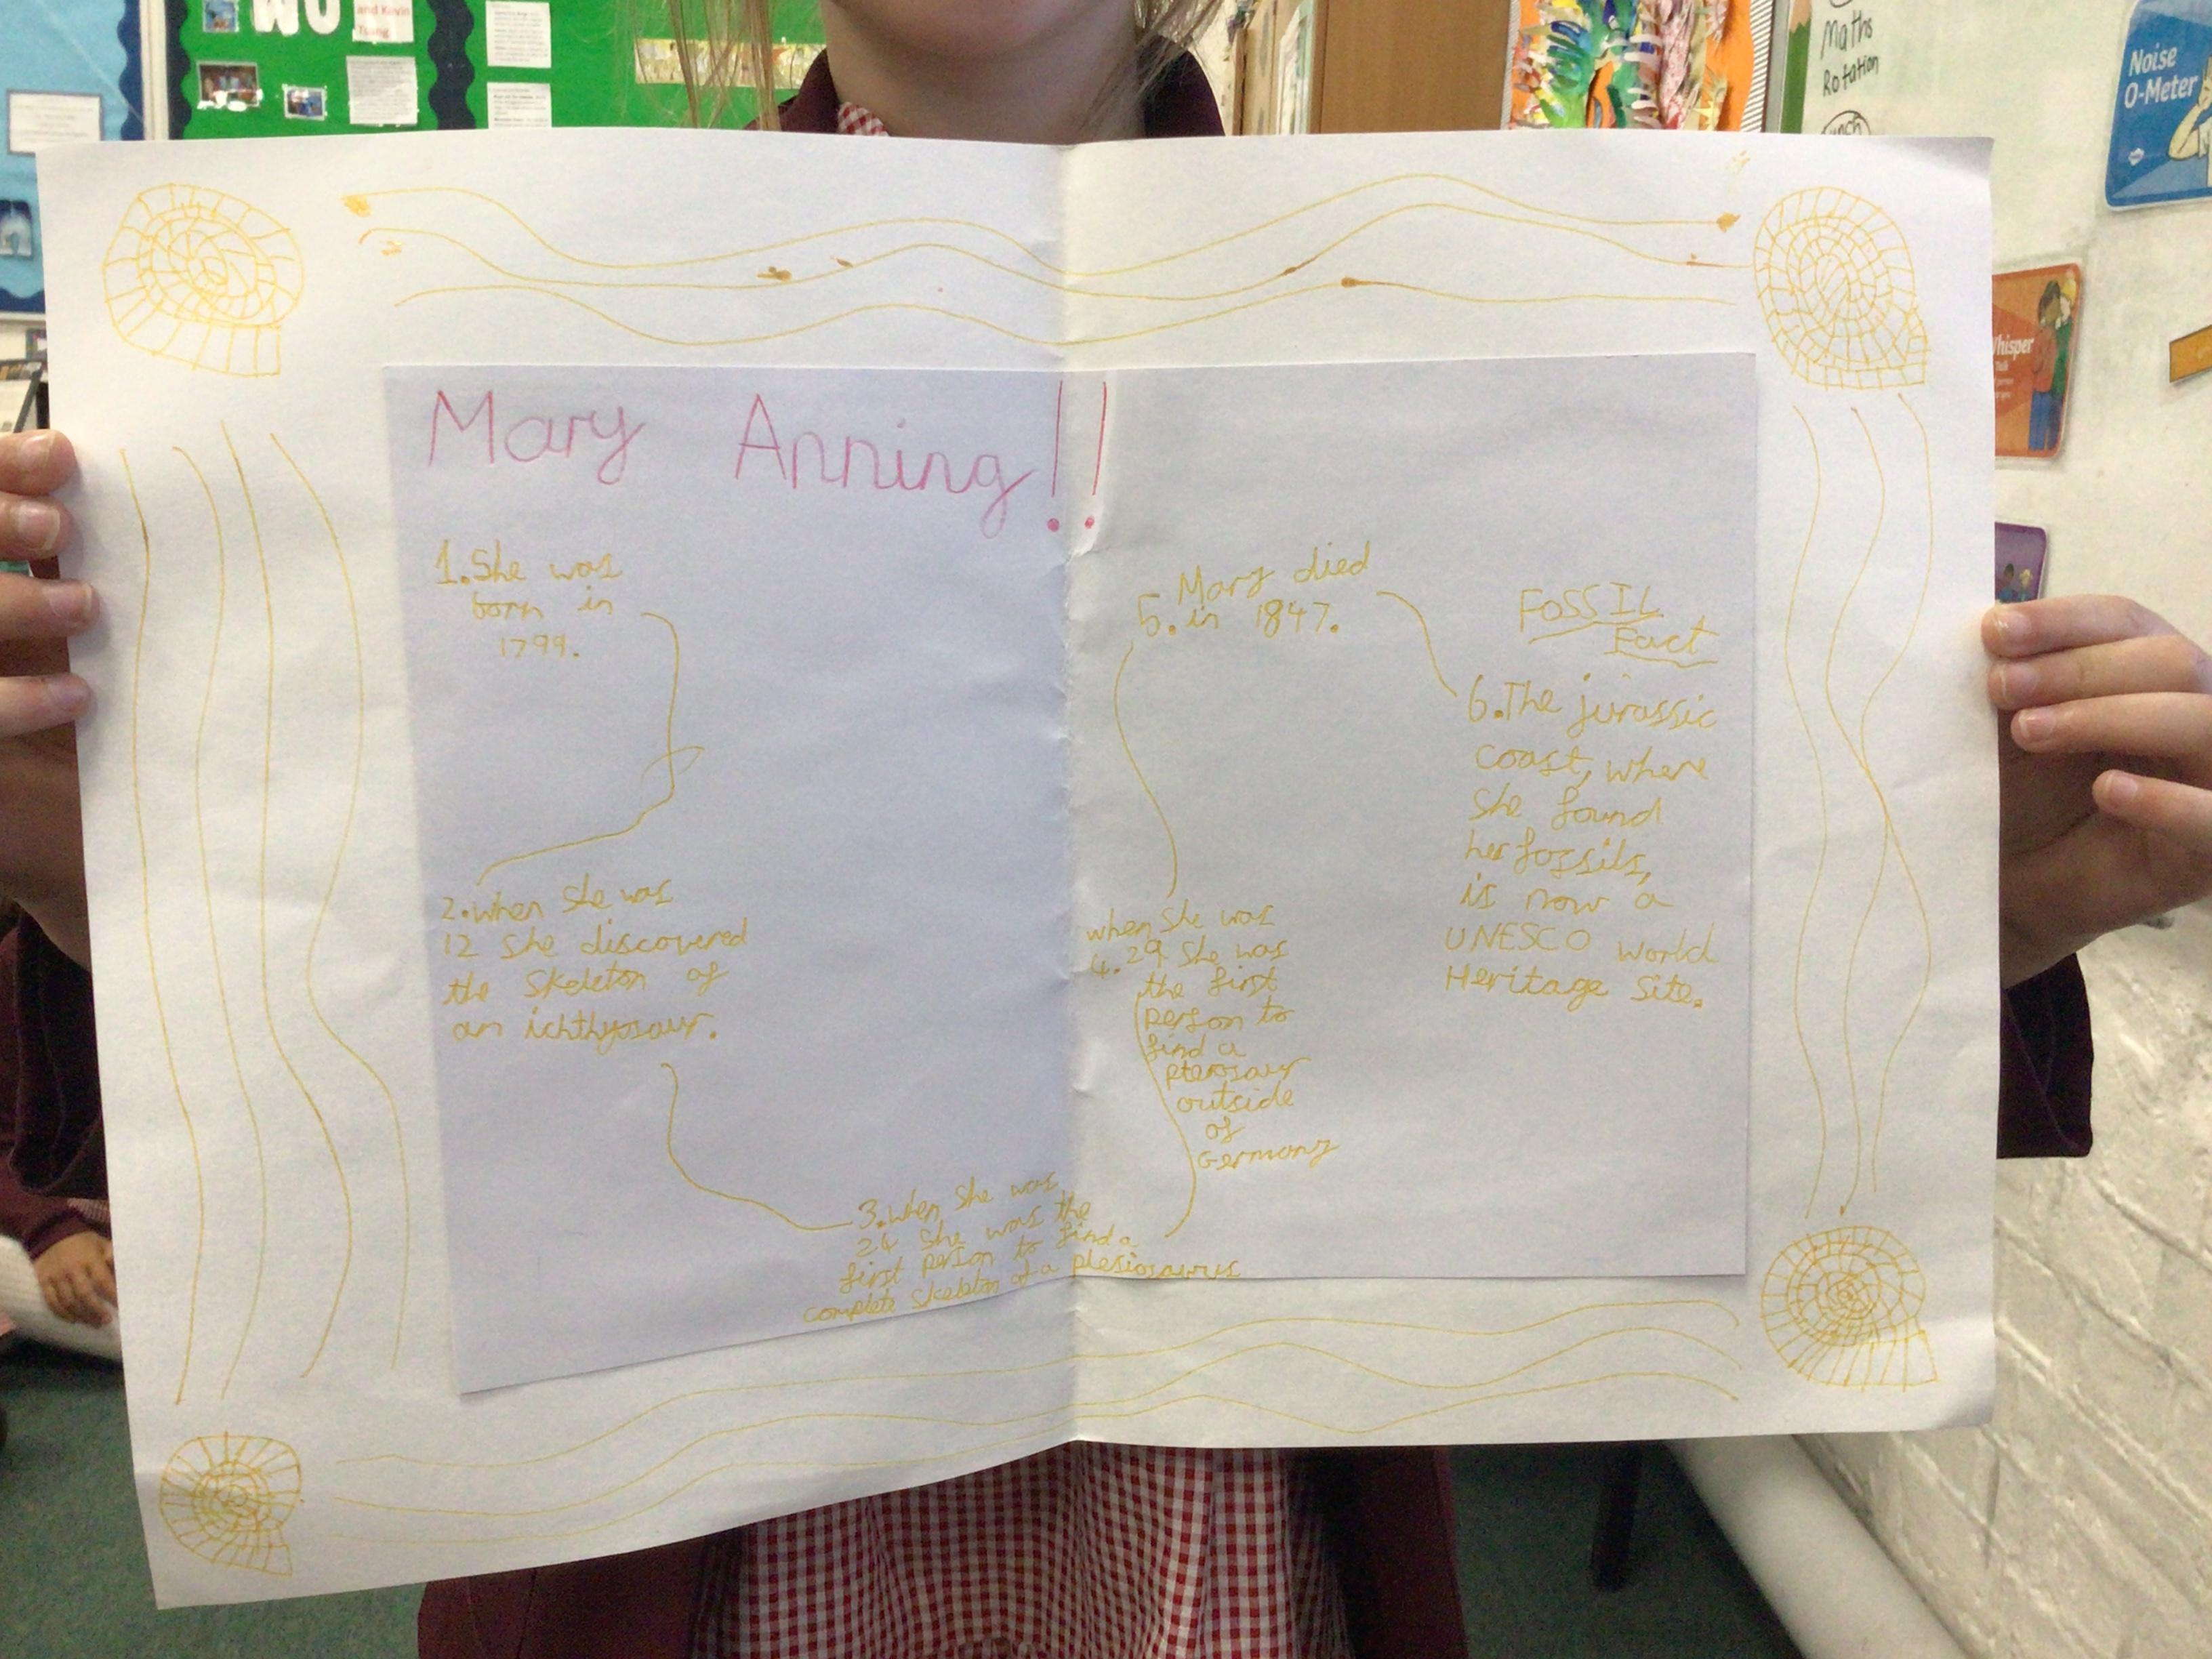 WO
and Kevin
Maths
Rotation
Noise
O-Meter
Whisper
Mary Anning!!
1. She was
born in
1799.
2. when she was
12 she discovered
the skeleton of
an ichthyosaur.
3. when she was
24 she was the
first person to find a
complete skeleton of a plesiosaurus
when she was
4. 29 she was
the first
person to
find a
pterosaur
outside
of
Germany
Mary died
5. in 1847.
FOSSIL
Fact
6. The jurassic
coast, where
she found
her fossils,
is now a
UNESCO world
Heritage Site.